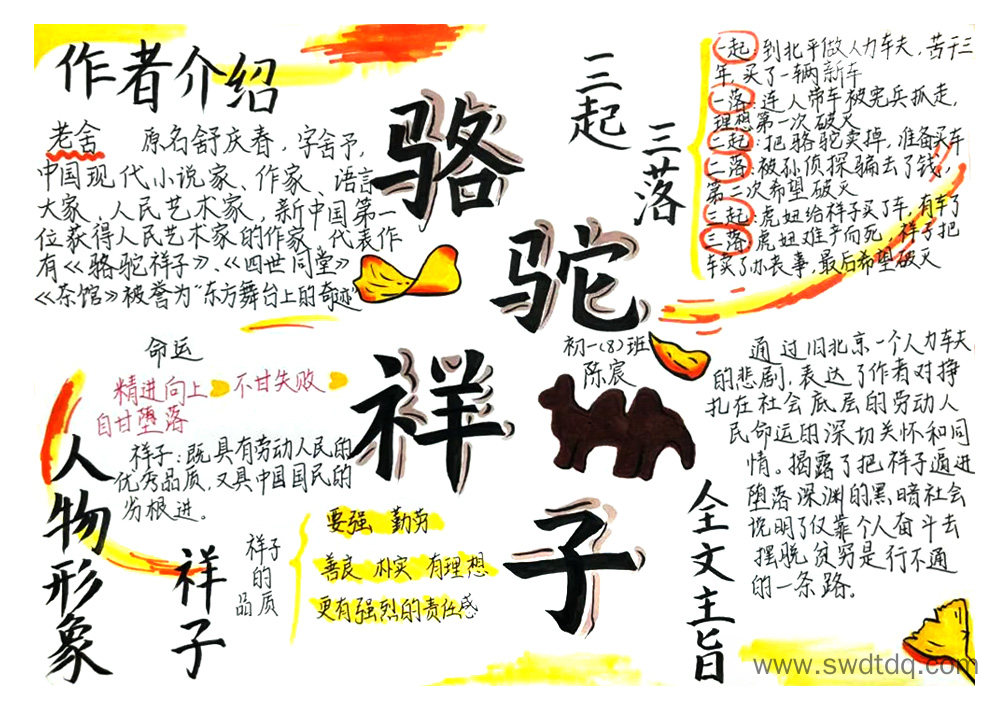 作者介绍
老舍 原名舒庆春，字舍予，
中国现代小说家、作家、语言
大家、人民艺术家，新中国第一
位获得人民艺术家的作家。代表作
有《骆驼祥子》、《四世同堂》
《茶馆》被誉为“东方舞台上的奇迹”
骆
驼
祥
子
初一(8)班
陈宸
三起
三落
一起：到北平做人力车夫，苦干三
年，买了一辆新车
一落：连人带车被宪兵抓走，
理想第一次破灭
二起：把骆驼卖掉，准备买车
二落：被孙侦探骗去了钱，
第二次希望破灭
三起：虎妞给祥子买了车，有车了
三落：虎妞难产而死，祥子把
车买了办丧事，最后希望破灭
命运
精进向上 不甘失败
自甘堕落
人物形象
祥子：既具有劳动人民的
优秀品质，又具中国国民的
劣根进。
祥子
祥子的品质
要强 勤劳
善良 朴实 有理想
更有强烈的责任感
全文主旨
通过旧北京一个人力车夫
的悲剧，表达了作者对挣
扎在社会底层的劳动人
民命运的深切关怀和同
情。揭露了把祥子逼进
堕落深渊的黑暗社会
说明了仅靠个人奋斗去
摆脱贫穷是行不通
的一条路。
www.swdtdq.com